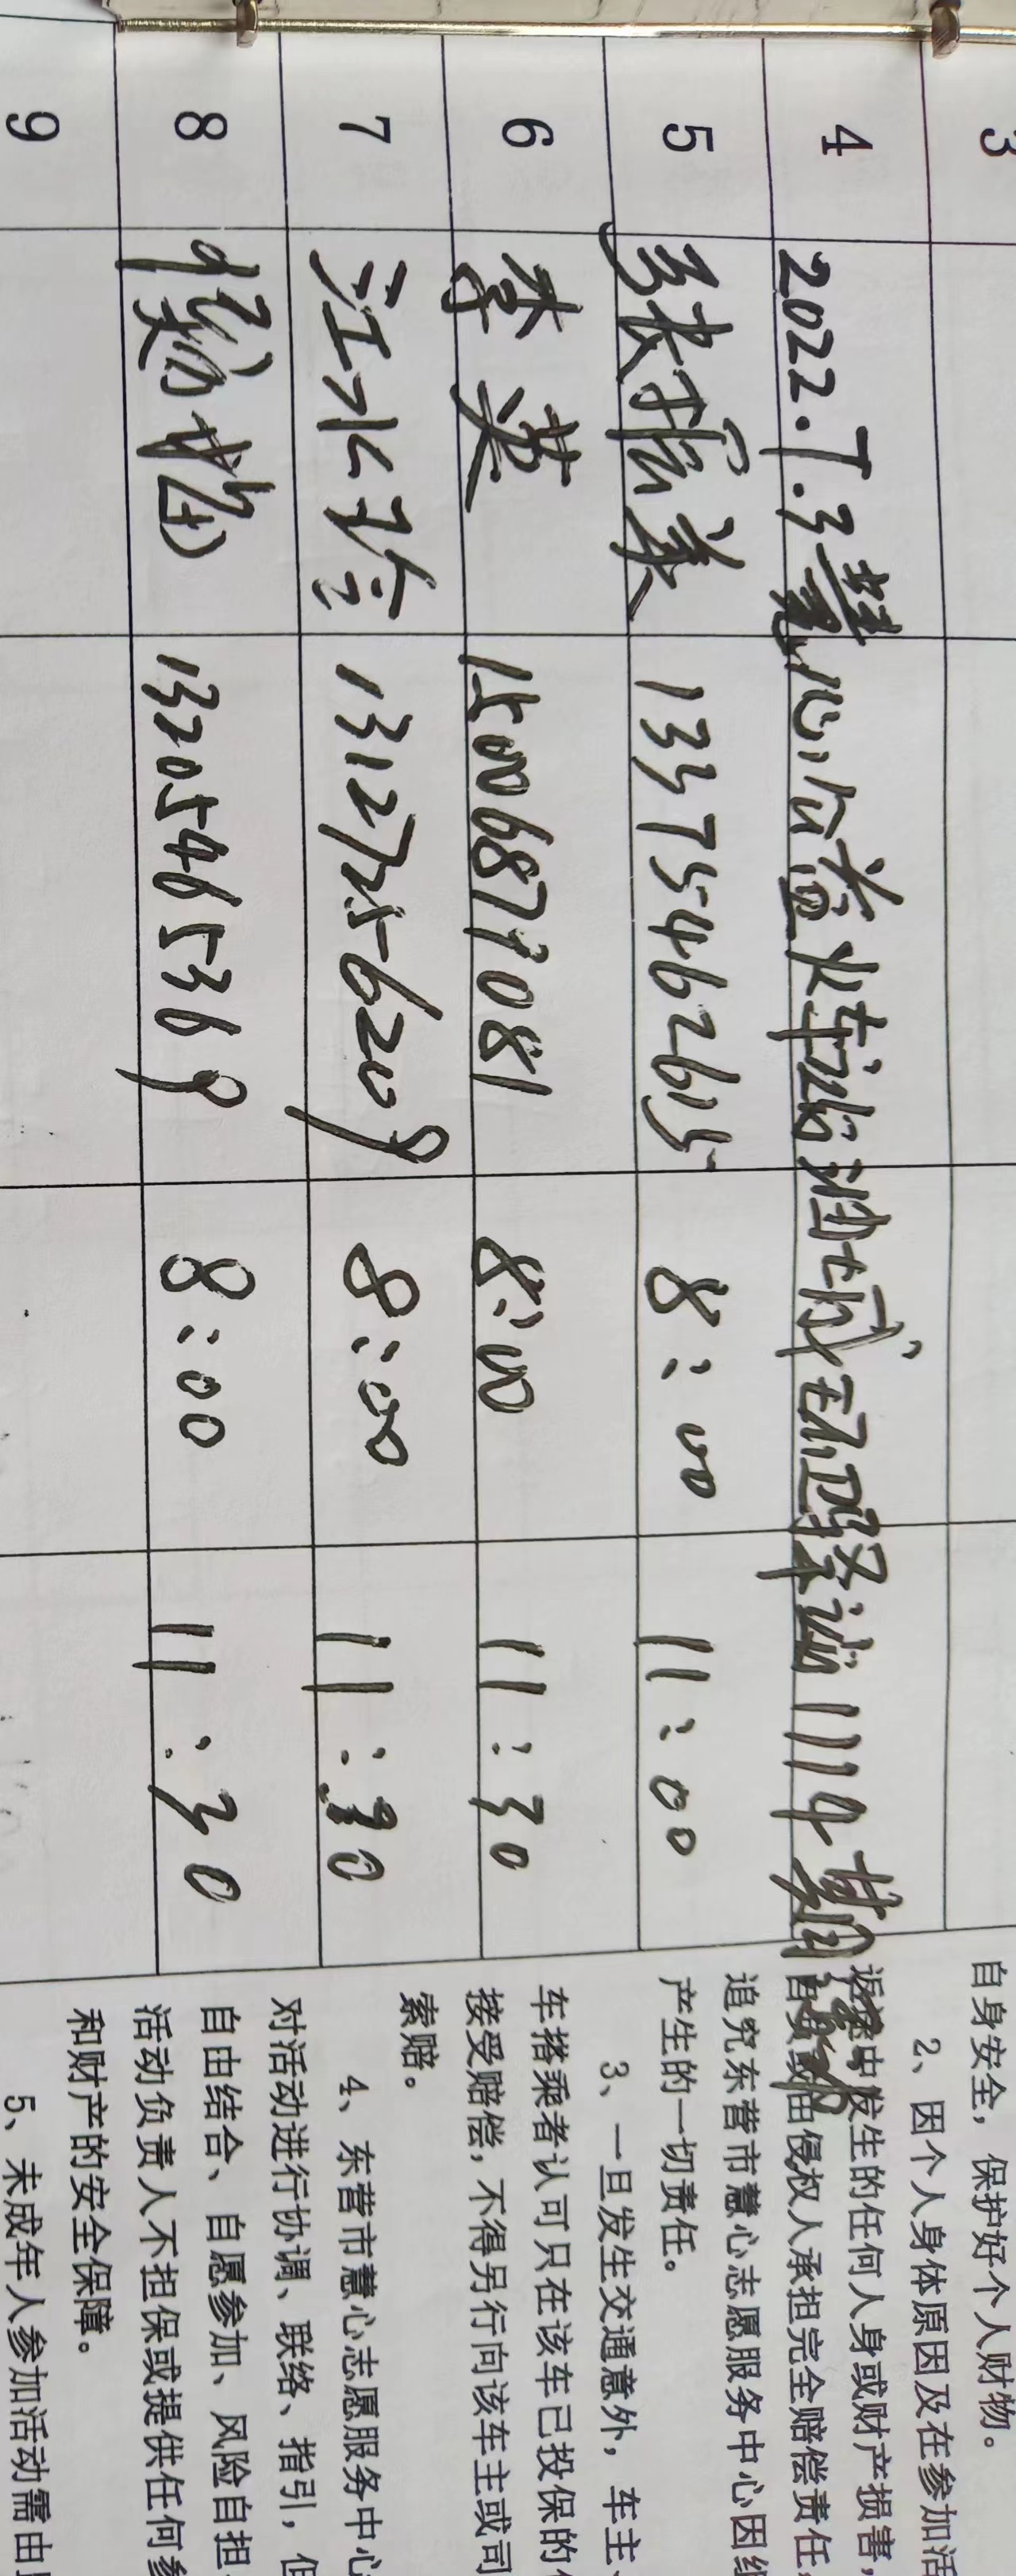 3
4 2022.7.3慧心公益火车站油城互助驿站111午
5 张振美 13375462615 8:00 11:00
6 李英 15006871081 8:00 11:30
7 江水玲 13127256209 8:00 11:30
8 13205465369 8:00 11:30
9
自身安全，保护好个人财物。
2、因个人身体原因及在参加活
中发生的任何人身或财产损害，
由侵权人承担完全赔偿责任
追究东营市慧心志愿服务中心因组
产生的一切责任。
3、一旦发生交通意外，车主、
车搭乘者认可只在该车已投保的
接受赔偿，不得另行向该车主或司
索赔。
4、东营市慧心志愿服务中心
对活动进行协调、联络、指引，但
自由结合、自愿参加、风险自担
活动负责人不担保或提供任何参
和财产的安全保障。
5、未成年人参加活动需由